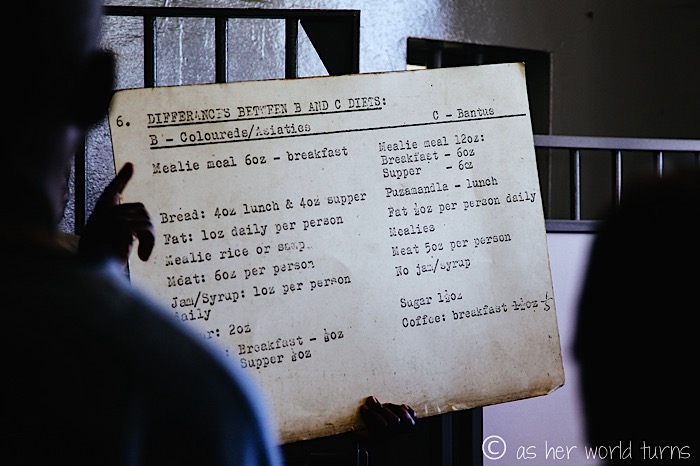 6. DIFFERANCIS BETWEEN B AND C DIETS:
B - Coloureds/Asiatics
Mealie meal 6oz - breakfast
Bread: 4oz lunch & 4oz supper
Fat: 1oz daily per person
Mealie rice or samp
Meat: 6oz per person
Jam/Syrup: 1oz per person
daily
2oz
: Breakfast - ½oz
Supper ½oz
C - Bantus
Mealie meal 12oz:
Breakfast - 6oz
Supper - 6oz
Puzamandla - lunch
Fat ½oz per person daily
Mealies
Meat 5oz per person
No jam/syrup
Sugar 1½oz
Coffee: breakfast
© as her world turns